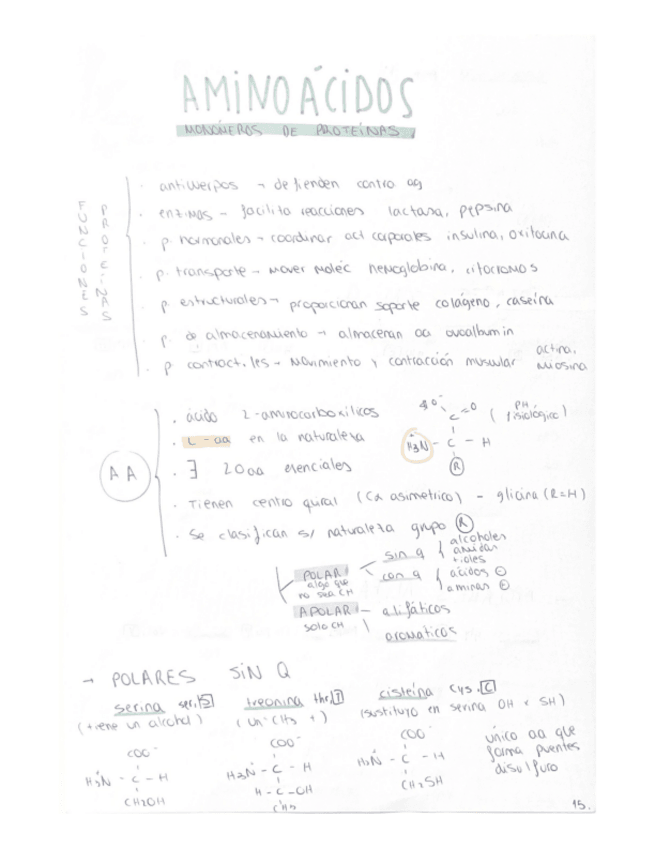 AMINOÁCIDOS
MONÓMEROS DE PROTEÍNAS
FUNCIONES
PROTEÍNAS
· anticuerpos → defienden contra ag
· enzimas - facilita reacciones lactasa, pepsina
· p. hormonales → coordinar act corporales insulina, oxitocina
· p. transporte → mover moléc hemoglobina, citocromos
· p. estructurales → proporcionan soporte colágeno, caseína
· p. de almacenamiento → almacenan aa ovoalbumin
· p contractiles → movimiento y contracción muscular actina, miosina
AA
· ácido 2-aminocarboxílicos
· L-aa en la naturaleza
· ∃ 20aa esenciales
· Tienen centro quiral (Cα asimetrico) - glicina (R=H)
· Se clasifican s/ naturaleza grupo R
O⁻
C=O
(PH fisiológico)
H₃N⁺ - C - H
R
POLAR
algo que
no sea CH
sin q
alcoholes
amidas
tioles
con q
ácidos ⊖
aminas ⊕
APOLAR
solo CH
alifáticos
aromaticos
→ POLARES SIN Q
serina ser. S
(tiene un alcohol)
COO⁻
H₃N⁺ - C - H
CH₂OH
treonina thr. T
(un -CH₃ +)
COO⁻
H₃N⁺ - C - H
H - C - OH
CH₃
cisteína cys. C
(sustituyo en serina OH x SH)
COO⁻
H₃N⁺ - C - H
CH₂SH
único aa que
forma puentes
disulfuro
15.